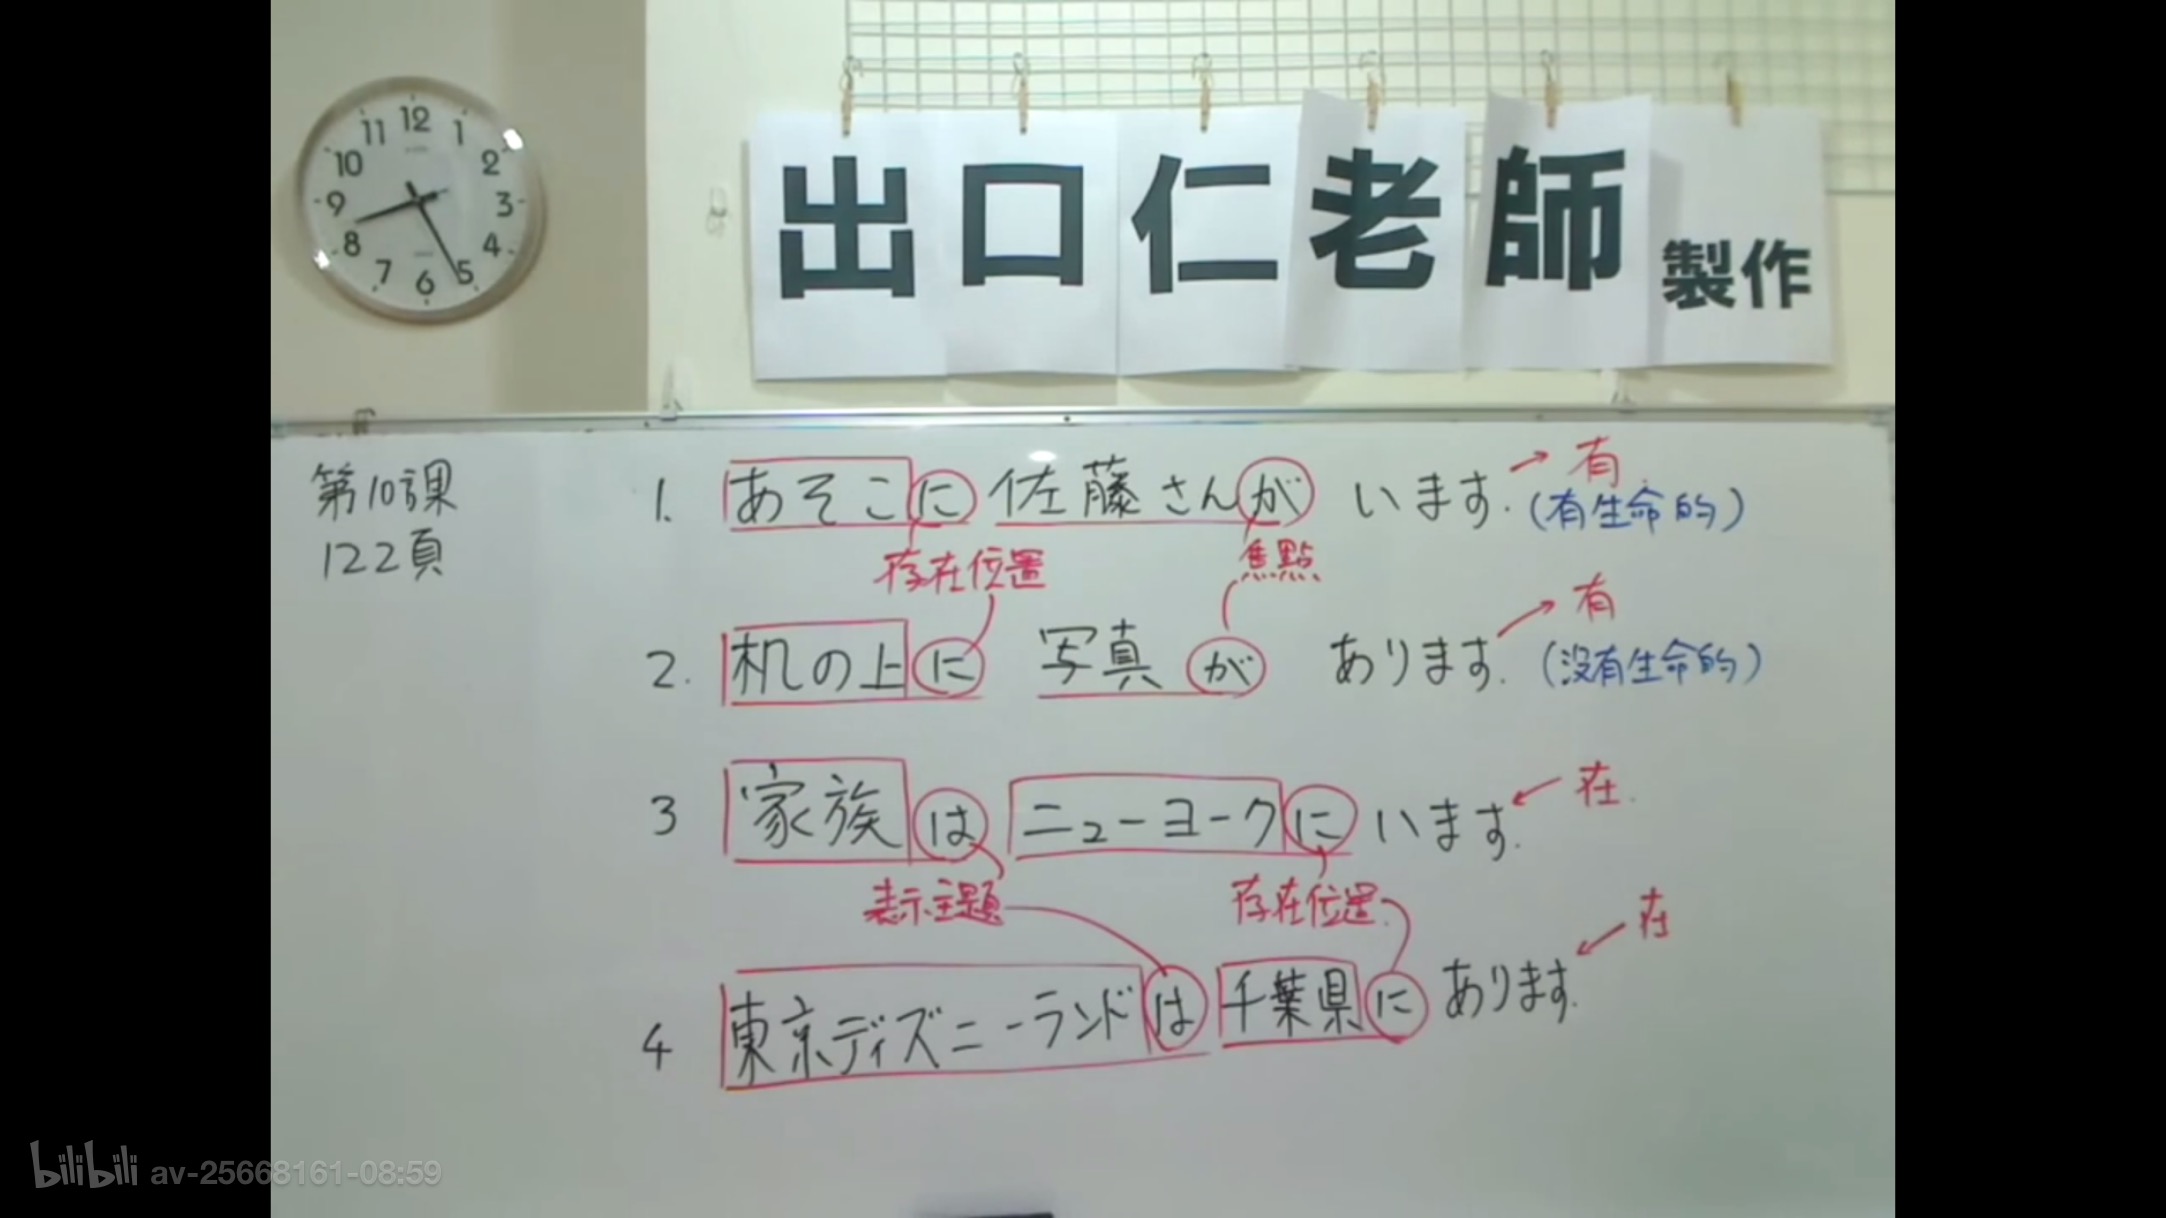 12
1
2
3
4
5
6
7
8
9
10
11
出口仁老師製作
第10課
122頁
1. あそこに 佐藤さんが います. 有
(有生命的)
存在位置 焦點
2. 机の上に 写真が あります. 有
(没有生命的)
3 家族は ニューヨークに います. 在.
表示主題 存在位置.
4 東京ディズニーランドは 千葉県に あります. 在
bilibili av-25668161-08:59